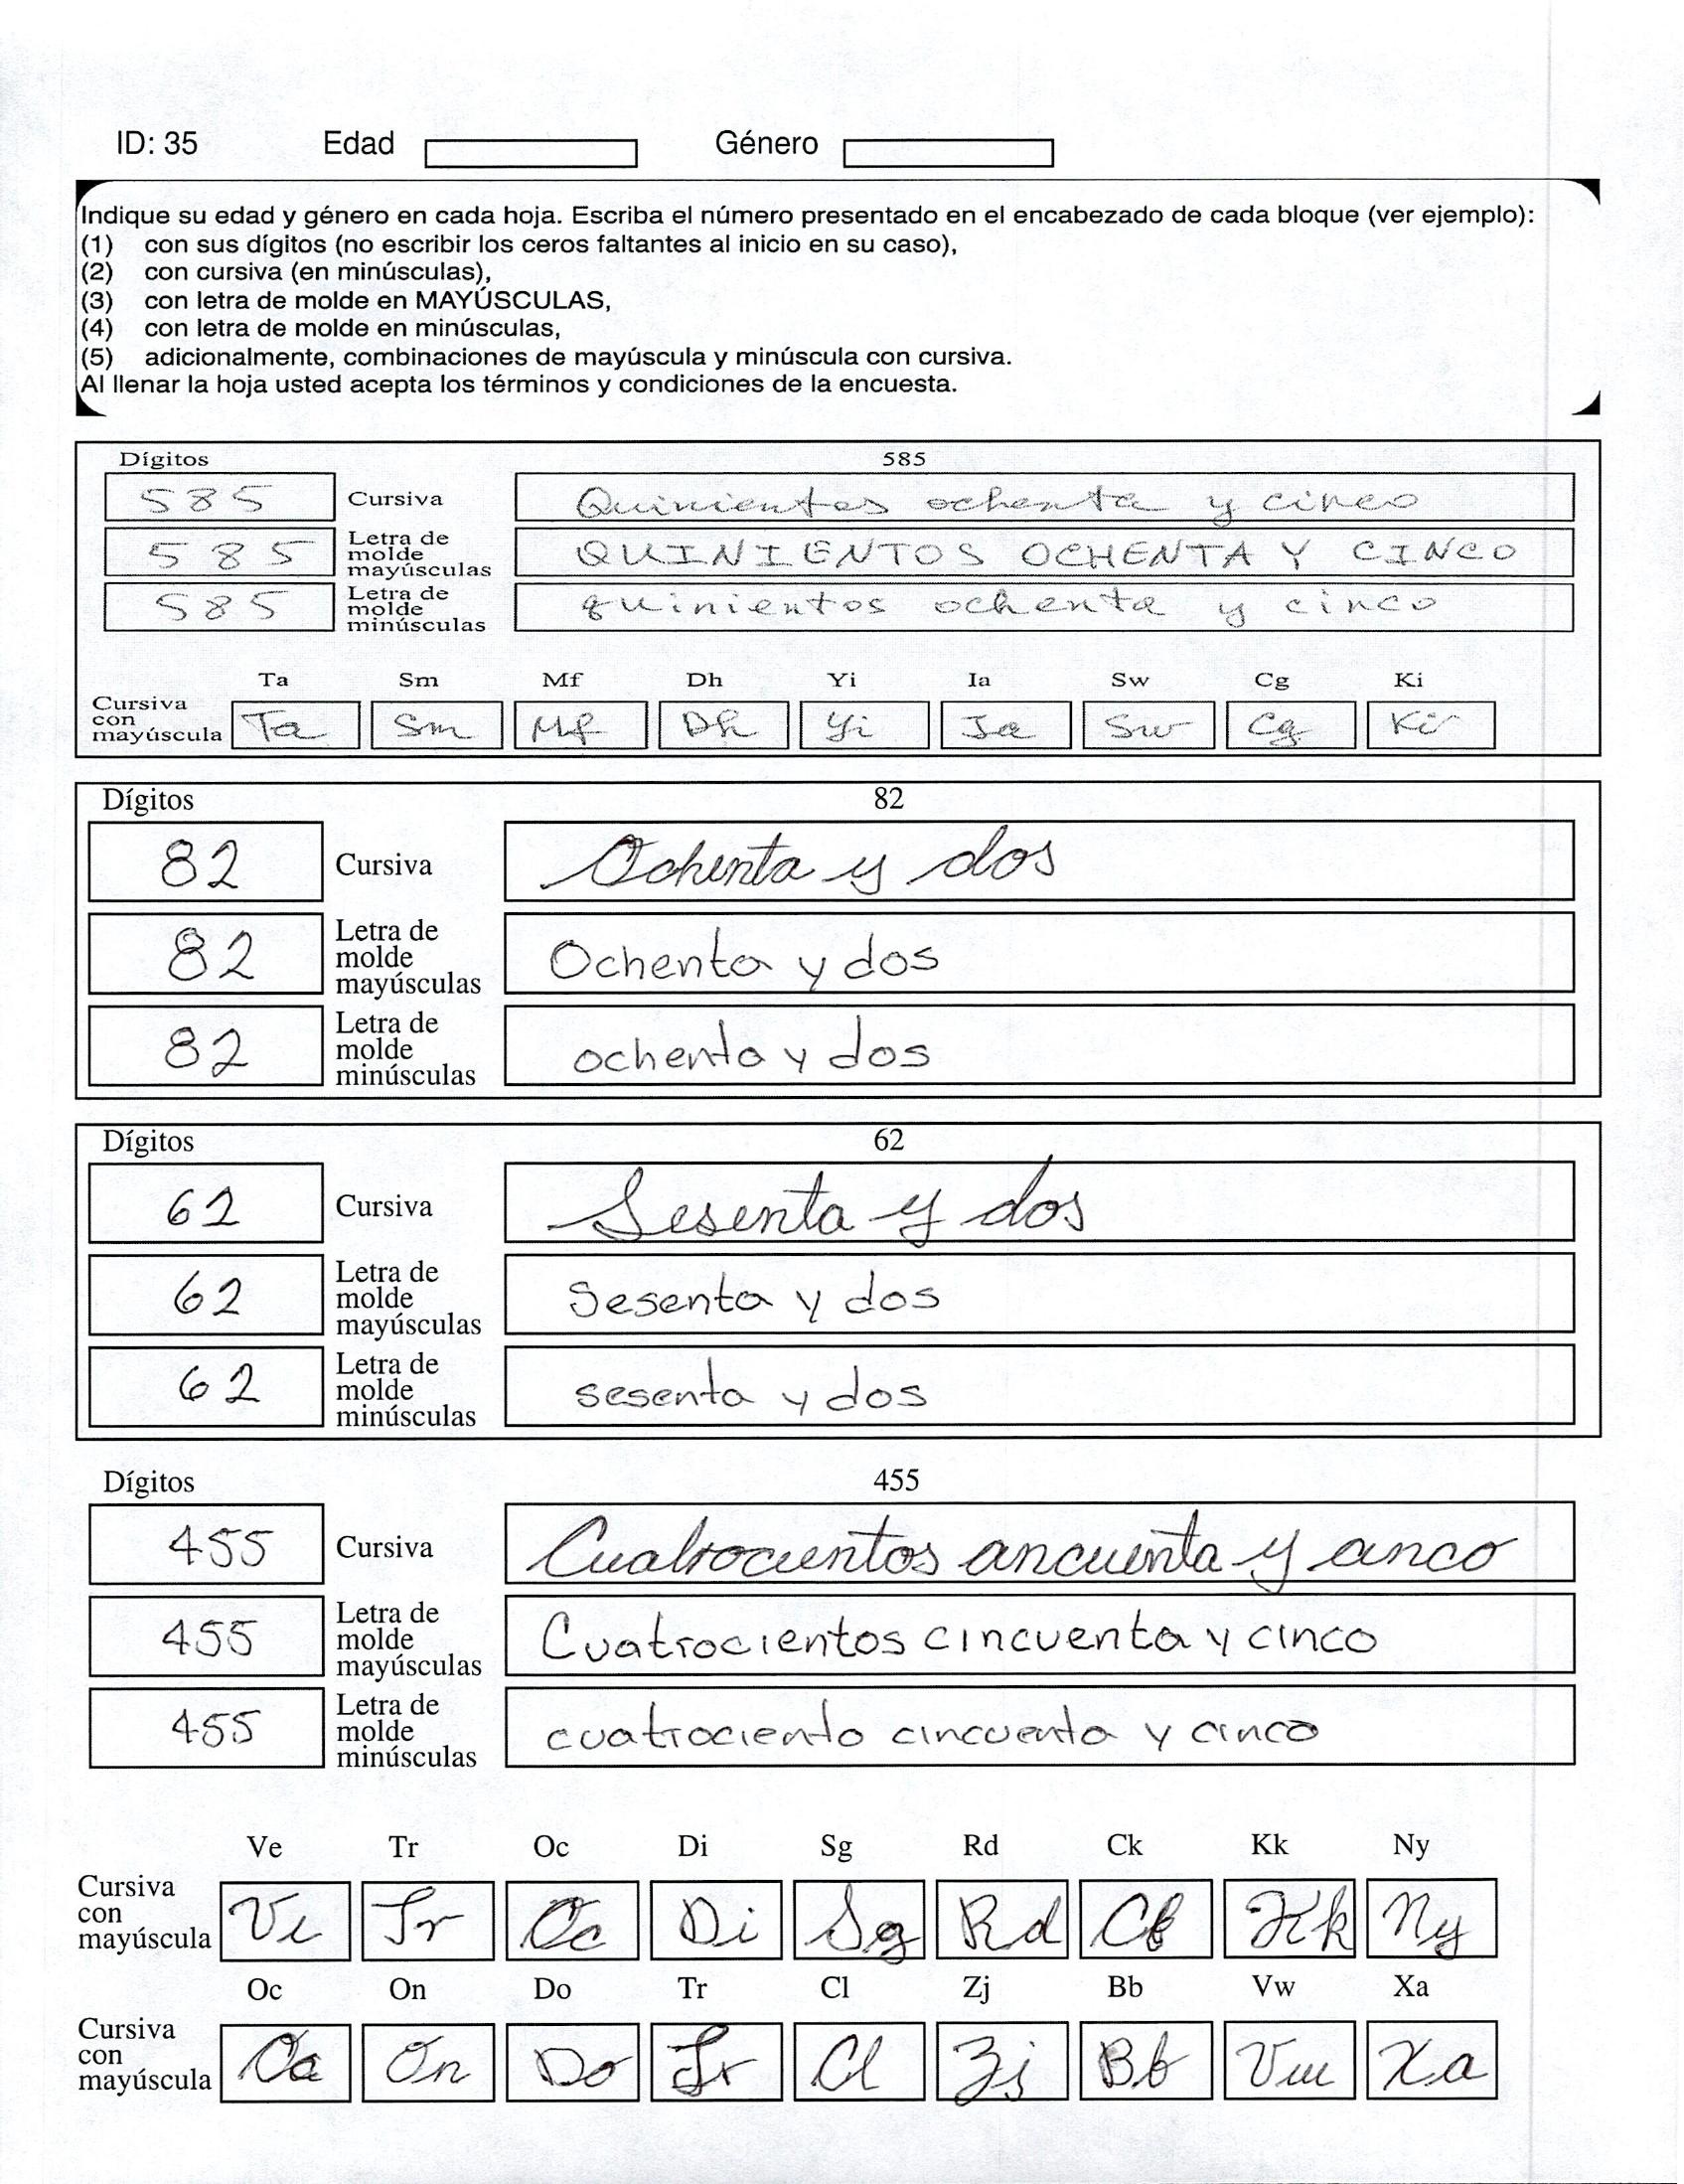 ID: 35 Edad Género
Indique su edad y género en cada hoja. Escriba el número presentado en el encabezado de cada bloque (ver ejemplo):
(1) con sus dígitos (no escribir los ceros faltantes al inicio en su caso),
(2) con cursiva (en minúsculas),
(3) con letra de molde en MAYÚSCULAS,
(4) con letra de molde en minúsculas,
(5) adicionalmente, combinaciones de mayúscula y minúscula con cursiva.
Al llenar la hoja usted acepta los términos y condiciones de la encuesta.
Dígitos 585
585 Cursiva Quinientos ochenta y cinco
585 Letra de molde mayúsculas QUINIENTOS OCHENTA Y CINCO
585 Letra de molde minúsculas quinientos ochenta y cinco
Ta Sm Mf Dh Yi Ia Sw Cg Ki
Cursiva con mayúscula Ta Sm Mf Dh Yi Ia Sw Cg Ki
Dígitos 82
82 Cursiva Ochenta y dos
82 Letra de molde mayúsculas Ochenta y dos
82 Letra de molde minúsculas ochenta y dos
Dígitos 62
62 Cursiva Sesenta y dos
62 Letra de molde mayúsculas Sesenta y dos
62 Letra de molde minúsculas sesenta y dos
Dígitos 455
455 Cursiva Cuatrocientos cincuenta y cinco
455 Letra de molde mayúsculas Cuatrocientos cincuenta y cinco
455 Letra de molde minúsculas cuatrociento cincuenta y cinco
Ve Tr Oc Di Sg Rd Ck Kk Ny
Cursiva con mayúscula Ve Tr Oc Di Sg Rd Ck Kk Ny
Oc On Do Tr Cl Zj Bb Vw Xa
Cursiva con mayúscula Oc On Do Tr Cl Zj Bb Vw Xa